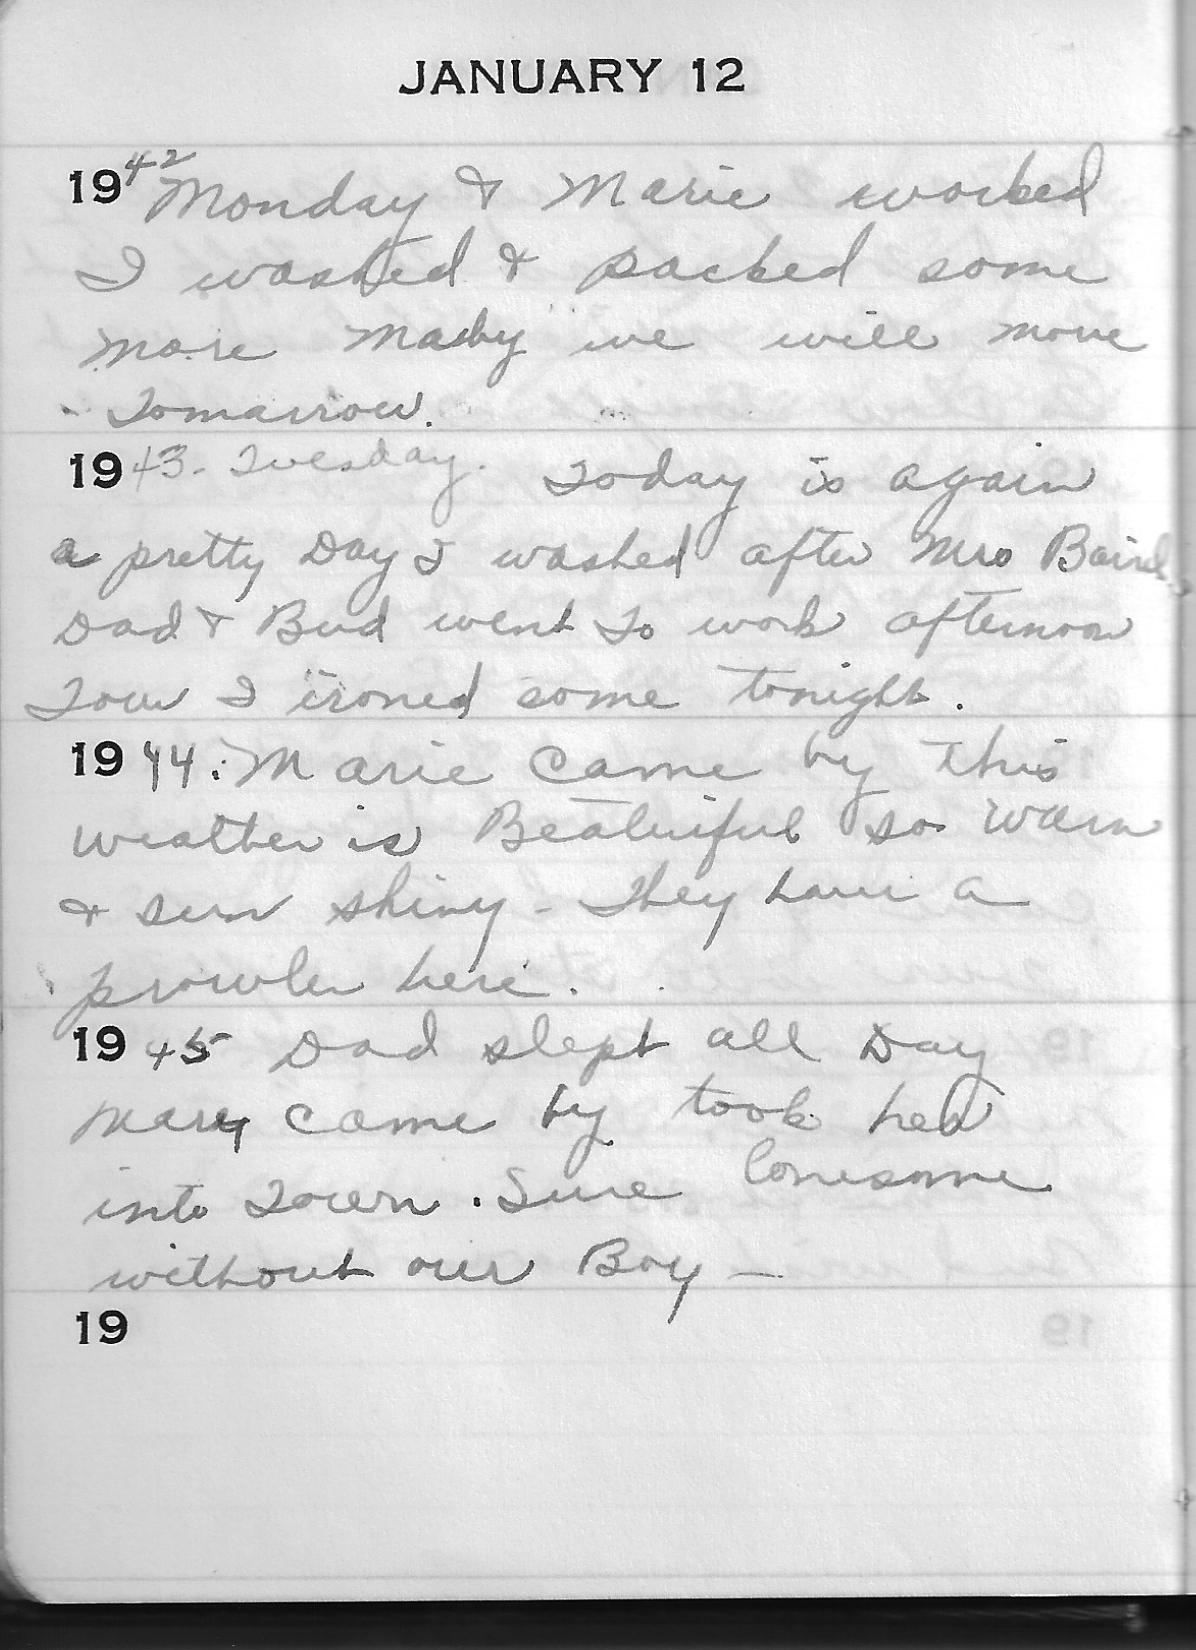 JANUARY 12
1942 Monday & Marie worked
I washed & packed some
more we will move
Tomarrow.
1943. Tuesday. Today is again
a pretty Day I washed after Mrs Baird
Dad & Bud went to work afternoon
I ironed some tonight.
1944. Marie came by This
weather is so warm
& sun shiny - They have a
prowler here.
1945 Dad slept all Day
Mary came by took her
into Town. Sure lonesome
without our Boy -
19